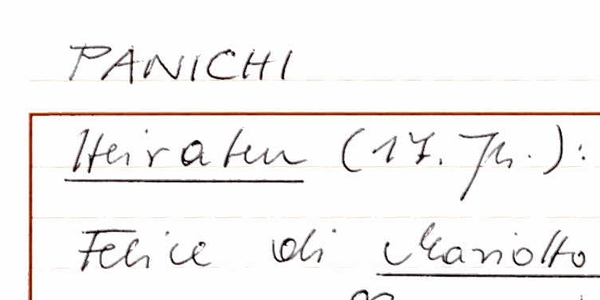 PANICHI
Heiraten (17. Jh.):
Felice di Mariotto